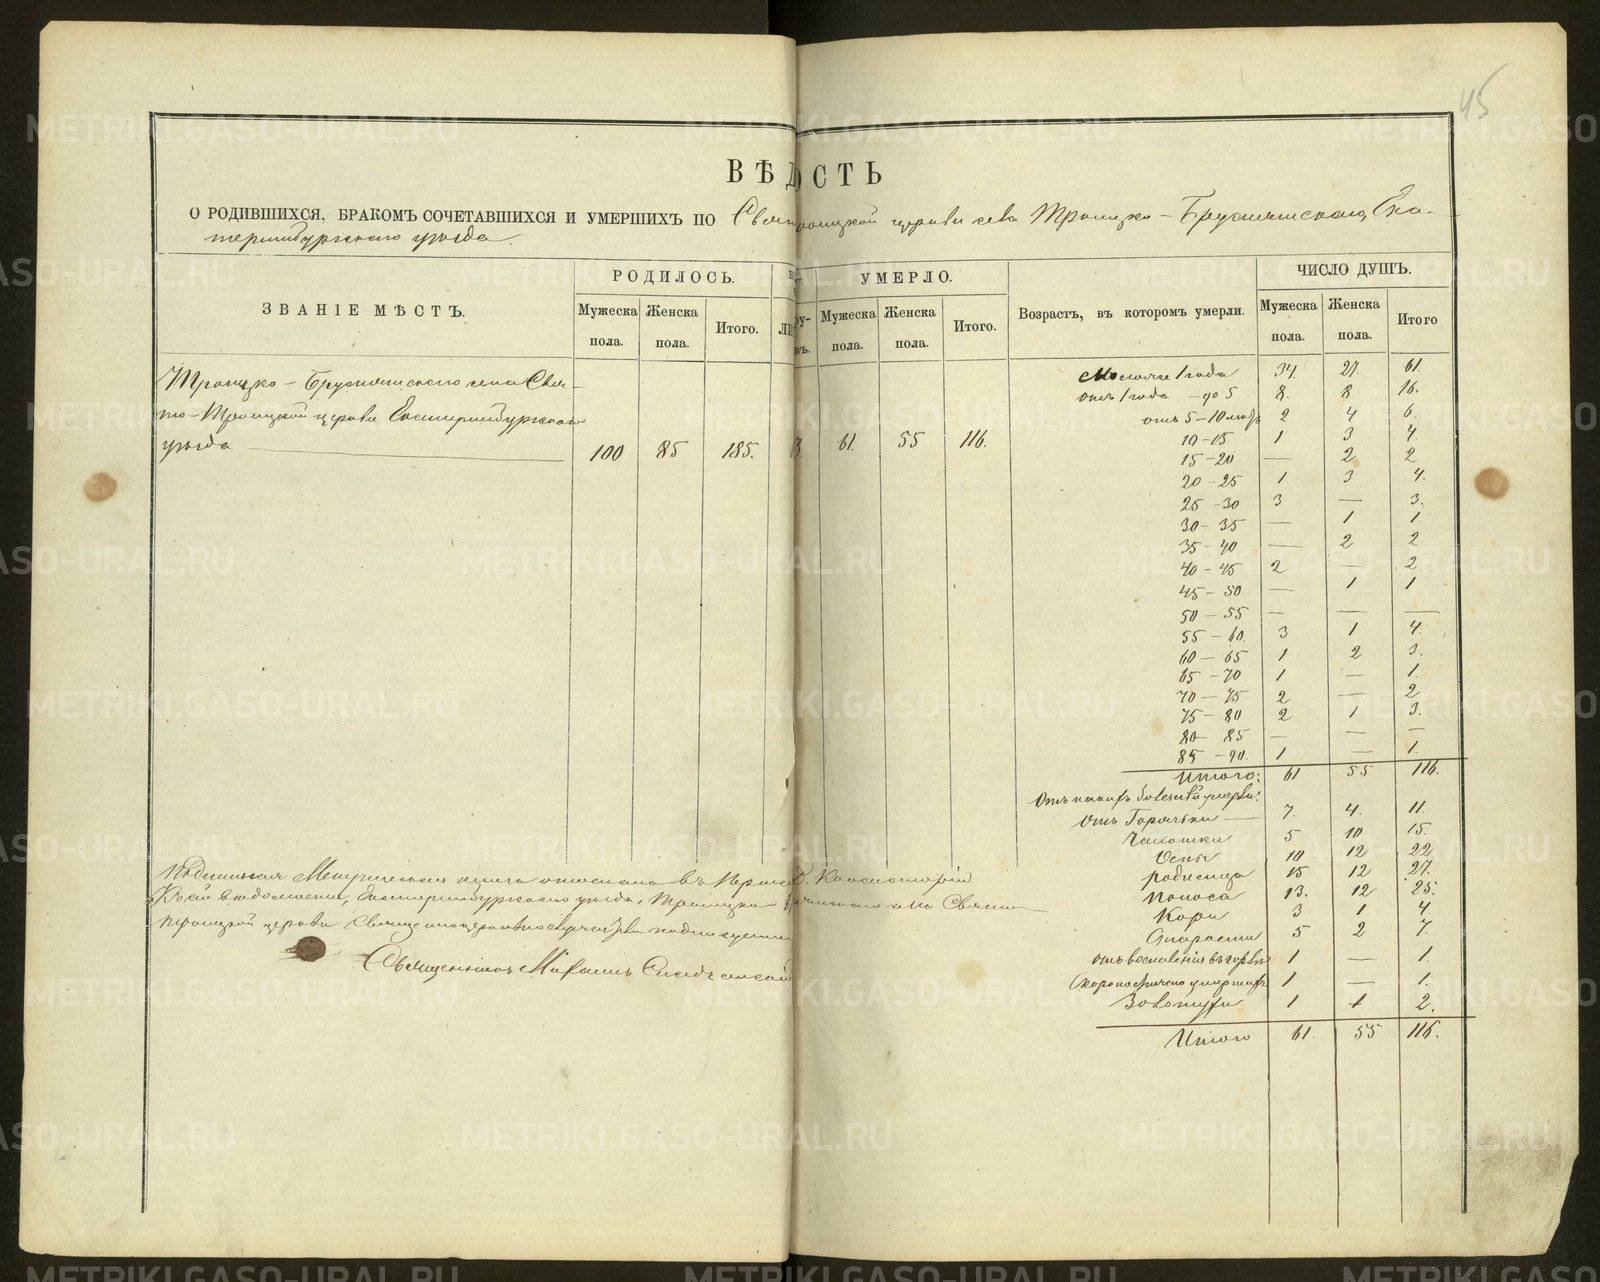 45
ВѢДОСТЬ
О РОДИВШИХСЯ, БРАКОМЪ СОЧЕТАВШИХСЯ И УМЕРШИХЪ ПО Свято-Троицкой церкви села Троицко-Бруснятскаго, Ека-
теринбургскаго уѣзда.
ЗВАНІЕ МѢСТЪ.
РОДИЛОСЬ.
Мужеска пола.
Женска пола.
Итого.
УМЕРЛО.
Мужеска пола.
Женска пола.
Итого.
Возрастъ, въ которомъ умерли.
ЧИСЛО ДУШЪ.
Мужеска пола.
Женска пола.
Итого
Троицко-Бруснятскаго села Свя-
то-Троицкой церкви Екатеринбургскаго
уѣзда 100 85 185. 61. 55 116.
Моложе 1 года 34. 27. 61.
отъ 1 года - до 5 8. 8 16.
отъ 5-10 лѣтъ 2 4 6.
10-15 1 3 4.
15-20 — 2 2
20-25 1 3 4.
25-30 3 — 3.
30-35 — 1 1.
35-40 — 2 2
40-45 2 — 2.
45-50 — 1 1
50-55 — — —
55-60. 3 1 4.
60-65 1 2 3.
65-70 1 — 1.
70-75 2 — 2
75-80 2 1 3.
80-85 — — —
85-90. 1 — 1.
Итого: 61 55 116.
Отъ какихъ болезней умерли:
Отъ Горячки — 7. 4. 11.
Чахотки 5 10 15.
Оспы 10 12 22
Родимца 15 12 27.
Поноса 13. 12 25.
Кори 3 1 4.
Старости 5 2 7.
1 — 1.
Скоропостижно умершихъ 1 — 1.
Золотухи 1 1 2.
Итого 61. 55 116.
Подлинная Метрическая книга отослана въ Консисторію
Екатеринбургскаго уѣзда, Троицко села Свято
Троицкой церкви Священноцерковнослужители подписуемся
Священникъ
METRIKI.GASO-URAL.RU